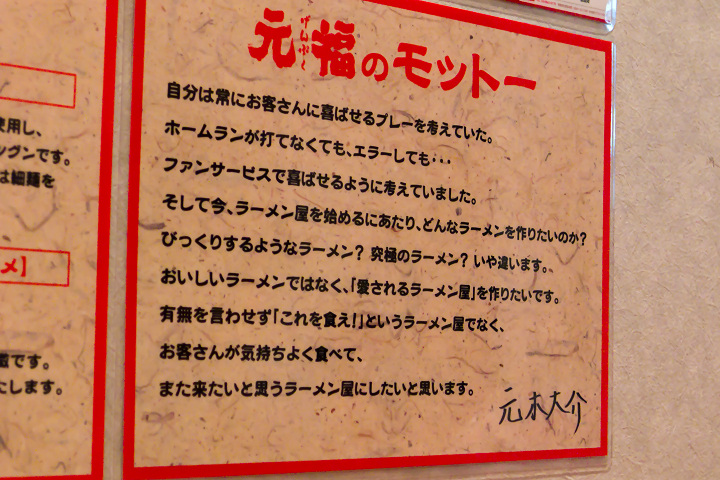 元福のモットー
げんぷく
自分は常にお客さんに喜ばせるプレーを考えていた。
ホームランが打てなくても、エラーしても・・・
ファンサービスで喜ばせるように考えていました。
そして今、ラーメン屋を始めるにあたり、どんなラーメンを作りたいのか?
びっくりするようなラーメン? 究極のラーメン? いや違います。
おいしいラーメンではなく、「愛されるラーメン屋」を作りたいです。
有無を言わせず「これを食え!」というラーメン屋でなく、
お客さんが気持ちよく食べて、
また来たいと思うラーメン屋にしたいと思います。
元木大介
使用し、
ツグンです。
は細麺を
メ】
です。
たします。